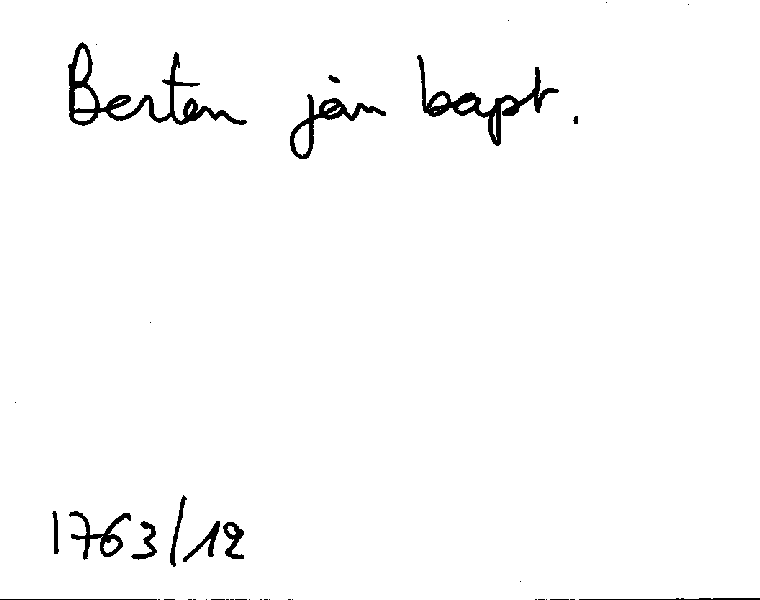 Berten jan bapt.
1763/12